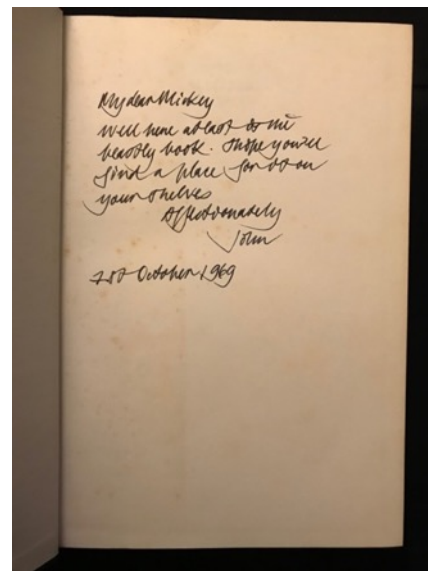 My dear Mickey
Well here at last is the
beastly book. I hope you'll
find a place for it on
your shelves
Affectionately
John
October 1969